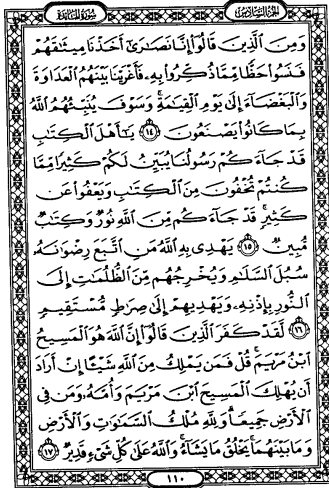 الجزء السادس سورة المائدة
وَمِنَ الَّذِينَ قَالُوٓا۟ إِنَّا نَصَٰرَىٰٓ أَخَذْنَا مِيثَٰقَهُمْ
فَنَسُوا۟ حَظًّا مِّمَّا ذُكِّرُوا۟ بِهِۦ فَأَغْرَيْنَا بَيْنَهُمُ الْعَدَاوَةَ
وَالْبَغْضَآءَ إِلَىٰ يَوْمِ الْقِيَٰمَةِ ۚ وَسَوْفَ يُنَبِّئُهُمُ اللَّهُ
بِمَا كَانُوا۟ يَصْنَعُونَ ١٤ يَٰٓأَهْلَ الْكِتَٰبِ
قَدْ جَآءَكُمْ رَسُولُنَا يُبَيِّنُ لَكُمْ كَثِيرًا مِّمَّا
كُنتُمْ تُخْفُونَ مِنَ الْكِتَٰبِ وَيَعْفُوا۟ عَن
كَثِيرٍ ۚ قَدْ جَآءَكُم مِّنَ اللَّهِ نُورٌ وَكِتَٰبٌ
مُّبِينٌ ١٥ يَهْدِى بِهِ اللَّهُ مَنِ اتَّبَعَ رِضْوَٰنَهُۥ
سُبُلَ السَّلَٰمِ وَيُخْرِجُهُم مِّنَ الظُّلُمَٰتِ إِلَى
النُّورِ بِإِذْنِهِۦ وَيَهْدِيهِمْ إِلَىٰ صِرَٰطٍ مُّسْتَقِيمٍ
١٦ لَّقَدْ كَفَرَ الَّذِينَ قَالُوٓا۟ إِنَّ اللَّهَ هُوَ الْمَسِيحُ
ابْنُ مَرْيَمَ ۚ قُلْ فَمَن يَمْلِكُ مِنَ اللَّهِ شَيْـًٔا إِنْ أَرَادَ
أَن يُهْلِكَ الْمَسِيحَ ابْنَ مَرْيَمَ وَأُمَّهُۥ وَمَن فِى
الْأَرْضِ جَمِيعًا ۗ وَلِلَّهِ مُلْكُ السَّمَٰوَٰتِ وَالْأَرْضِ
وَمَا بَيْنَهُمَا ۚ يَخْلُقُ مَا يَشَآءُ ۚ وَاللَّهُ عَلَىٰ كُلِّ شَىْءٍ قَدِيرٌ ١٧
١١٠